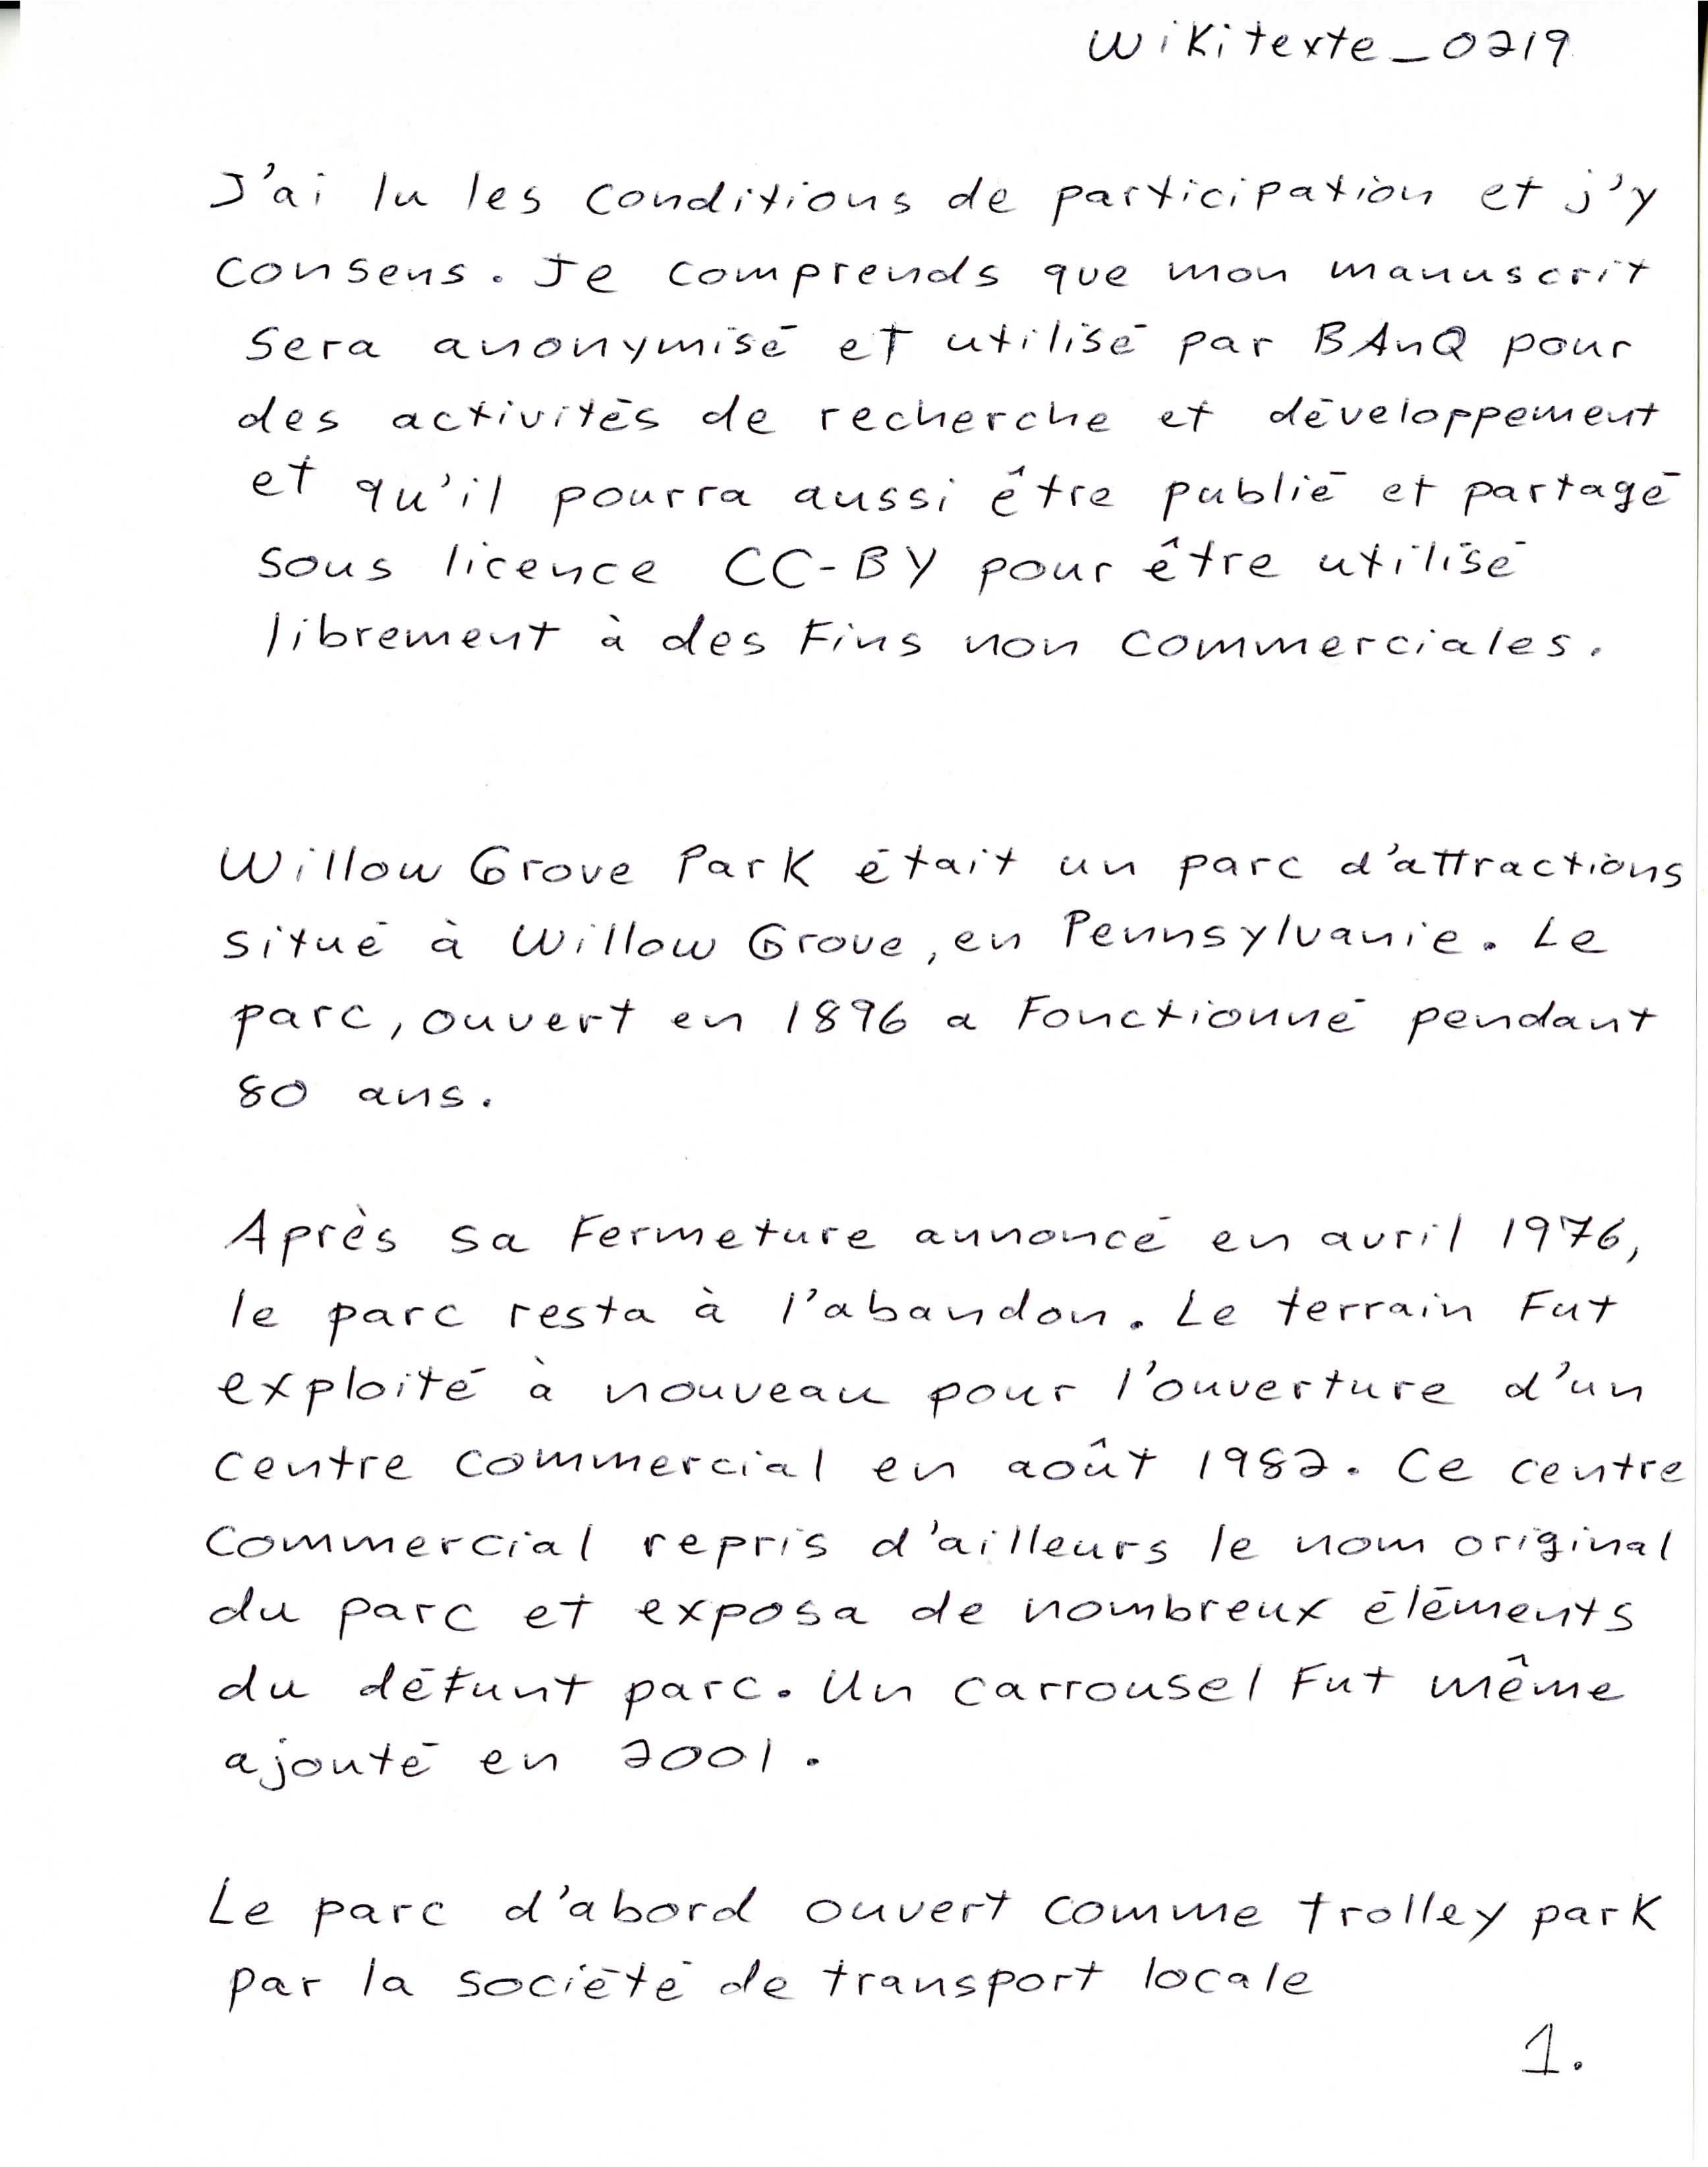 Wikitexte_0219
J'ai lu les conditions de participation et j'y
consens. Je comprends que mon manuscrit
sera anonymisé et utilisé par BAnQ pour
des activités de recherche et développement
et qu'il pourra aussi être publié et partagé
sous licence CC-BY pour être utilisé
librement à des fins non commerciales.
Willow Grove Park était un parc d'attractions
situé à Willow Grove, en Pennsylvanie. Le
parc, ouvert en 1896 a fonctionné pendant
80 ans.
Après sa fermeture annoncé en avril 1976,
le parc resta à l'abandon. Le terrain fut
exploité à nouveau pour l'ouverture d'un
centre commercial en août 1982. Ce centre
commercial repris d'ailleurs le nom original
du parc et exposa de nombreux éléments
du défunt parc. Un carrousel fut même
ajouté en 2001.
Le parc d'abord ouvert comme trolley park
par la société de transport locale
1.